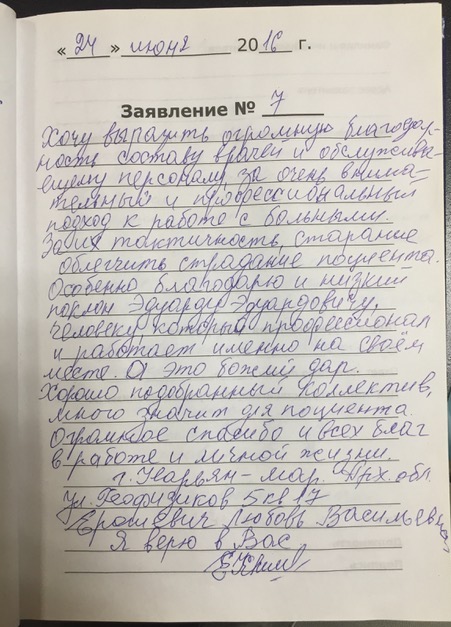 « 24 » июня 2016 г.
Заявление № 7
Хочу выразить огромную благодар-
ность составу врачей и обслужива-
ещему персоналу, за очень внима-
тельный и профессиональный
подход к работе с больными.
За их тактичность, старание
облегчить страдание поциента.
Особенно благодарю и низкий
поклон Эдуарду Эдуардовичу,
человеку, который профессионал
и работает именно на своём
месте. А это божий дар.
Хорошо подобранный коллектив,
много значит для поциента.
Огромное спасибо и всех благ
в работе и личной жизни.
г. Нарьян-мар. Арх. обл.
ул. Геофизиков 5 кв 17
Любовь Васильевна
Я верю в Вас